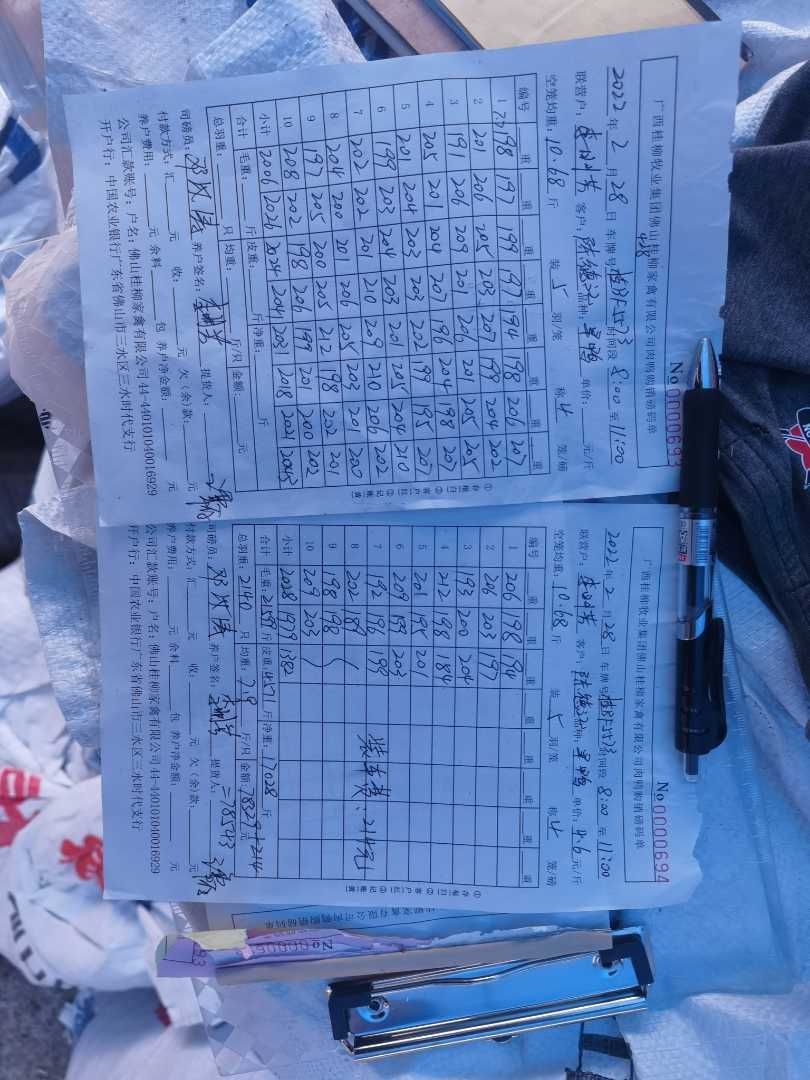 广西桂柳牧业集团佛山桂柳家禽有限公司肉鸭购销磅码单
No 0000693
2022 年 2 月 28 日 车牌号: 时间段 8:00 至 11:00
联营户: 客户: 陈德江 品种: 单价: 元/斤
空笼均重: 10.68 斤 装 5 羽/笼 称 4 笼/磅
编号 重 重 重 重 重 重 重 重
1 198 197 199 197 194 198 206 207
2 201 206 205 203 207 199 204 202
3 191 206 209 201 206 201 205 205
4 205 201 204 207 196 204 198 207
5 201 204 203 203 202 199 195 207
6 199 203 204 203 201 205 204 210
7 202 202 201 210 209 210 206 202
8 204 200 201 206 205 203 201 200
9 197 205 200 205 212 198 202 201
10 208 202 198 206 197 201 200 202
小计 2006 2026 2024 2041 2031 2018 2021 2043
合计 毛重: 斤 皮重: 斤 净重: 斤
总羽重: 只 均重: 斤/只 金额: 元
司磅员: 养户签名: 提货人:
付款方式: 汇 元 收: 元 欠(余)款: 元
养户费用: 元 余料 包 养户净金额: 元
公司汇款账号: 户名: 佛山桂柳家禽有限公司 44-440101040016929
开户行: 中国农业银行广东省佛山市三水区三水时代支行
①存根(白) ②客户(红) ③记账(黄)
广西桂柳牧业集团佛山桂柳家禽有限公司肉鸭购销磅码单
No 0000694
2022 年 2 月 28 日 车牌号: 时间段 8:00 至 11:00
联营户: 客户: 陈德江 品种: 单价: 4.6 元/斤
空笼均重: 10.68 斤 装 5 羽/笼 称 4 笼/磅
编号 重 重 重 重 重 重 重 重
1 206 198 194
2 206 203 197
3 193 200 204
4 212 198 184
5 201 195 201
6 209 199 203
7 192 196 199
8 202 189
9 198 198
10 209 203
小计 2028 1979 1382
装车费: 214元
合计 毛重: 21599 斤 皮重: 4571 斤 净重: 17028 斤
总羽重: 2140 只 均重: 7.9 斤/只 金额: 78329+214 元
=78543
司磅员: 养户签名: 提货人:
付款方式: 汇 元 收: 元 欠(余)款: 元
养户费用: 元 余料 包 养户净金额: 元
公司汇款账号: 户名: 佛山桂柳家禽有限公司 44-440101040016929
开户行: 中国农业银行广东省佛山市三水区三水时代支行
①存根(白) ②客户(红) ③记账(黄)